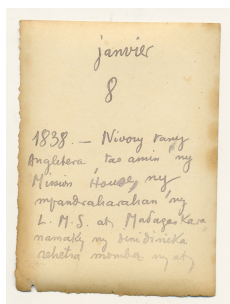 janvier
8
1838. – Nivory tany
Angletera, tao amin' ny
Mission House, ny
mpandraharahan' ny
L. M. S. aty Madagaskara,
namaky ny
rehetra momba ny aty